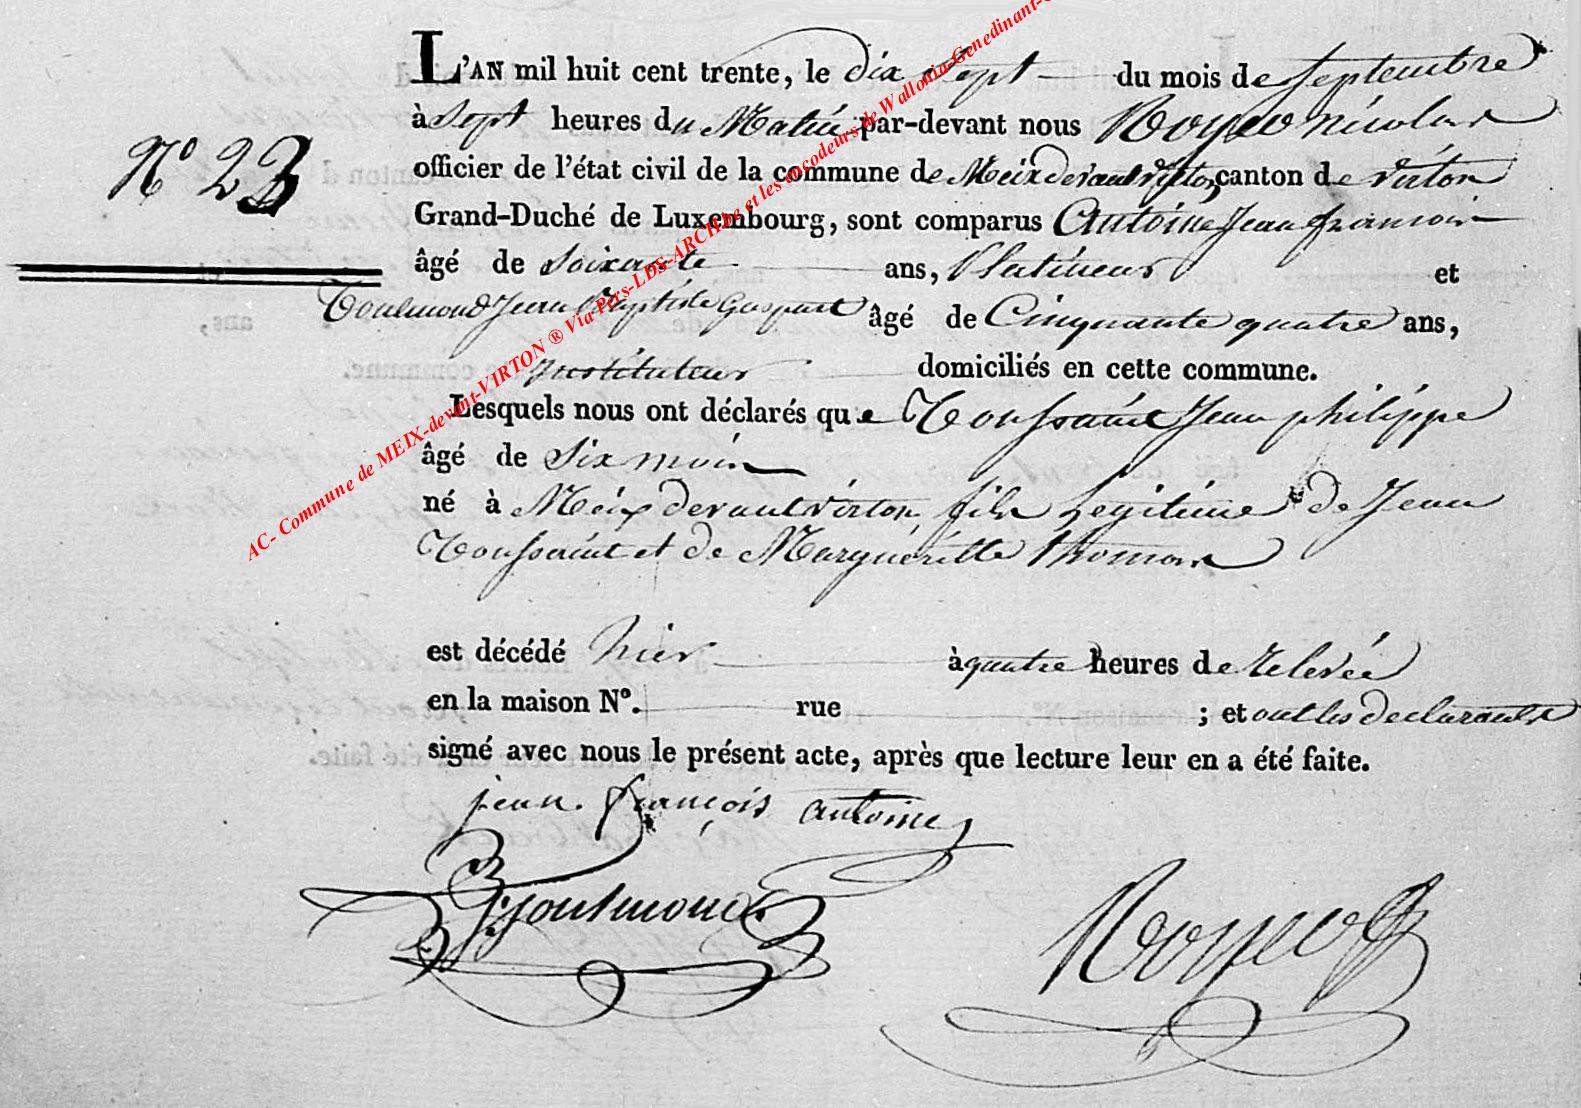 L'AN mil huit cent trente, le dix Sept du mois de Septembre
à Sept heures du Matin par-devant nous Royer nicolas
N° 23
officier de l'état civil de la commune de Meix devant virton, canton de virton
Grand-Duché de Luxembourg, sont comparus Antoine Jean françois
âgé de Soixante ans, Platineur et
Toulmond Jean Baptiste Gaspart âgé de Cinquante quatre ans,
Instituteur domiciliés en cette commune.
Lesquels nous ont déclarés que Toussaint Jean philippe
âgé de Six mois
né à Meix devant virton fils Légitime de Jean
Toussaint et de Marguéritte thomas
est décédé hier à quatre heures de relevée
en la maison N°. rue ; et ont les declarants
signé avec nous le présent acte, après que lecture leur en a été faite.
jean françois antoine
Toulmond
Royer
AC- Commune de MEIX-devant-VIRTON ® Via Pers-LDS-ARCH.be et les encodeurs de Wallonia-Genedinant-